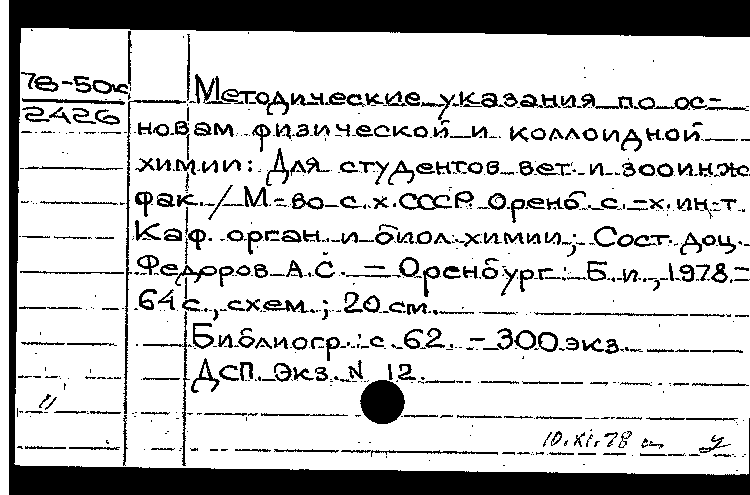 78-50к
2426
Методические указания по ос=
новам физической и коллоидной
химии: Для студентов вет. и зооинж
фак. / М-во с.х. СССР. Оренб. с.-х. ин-т.
Каф. орган. и биол. химии; Сост. доц.
Федоров А.С. – Оренбург: Б.и., 1978.–
64 с., схем.; 20 см.
Библиогр.: с. 62. – 300 экз.
ДСП. Экз. N 12.
10.XI.78